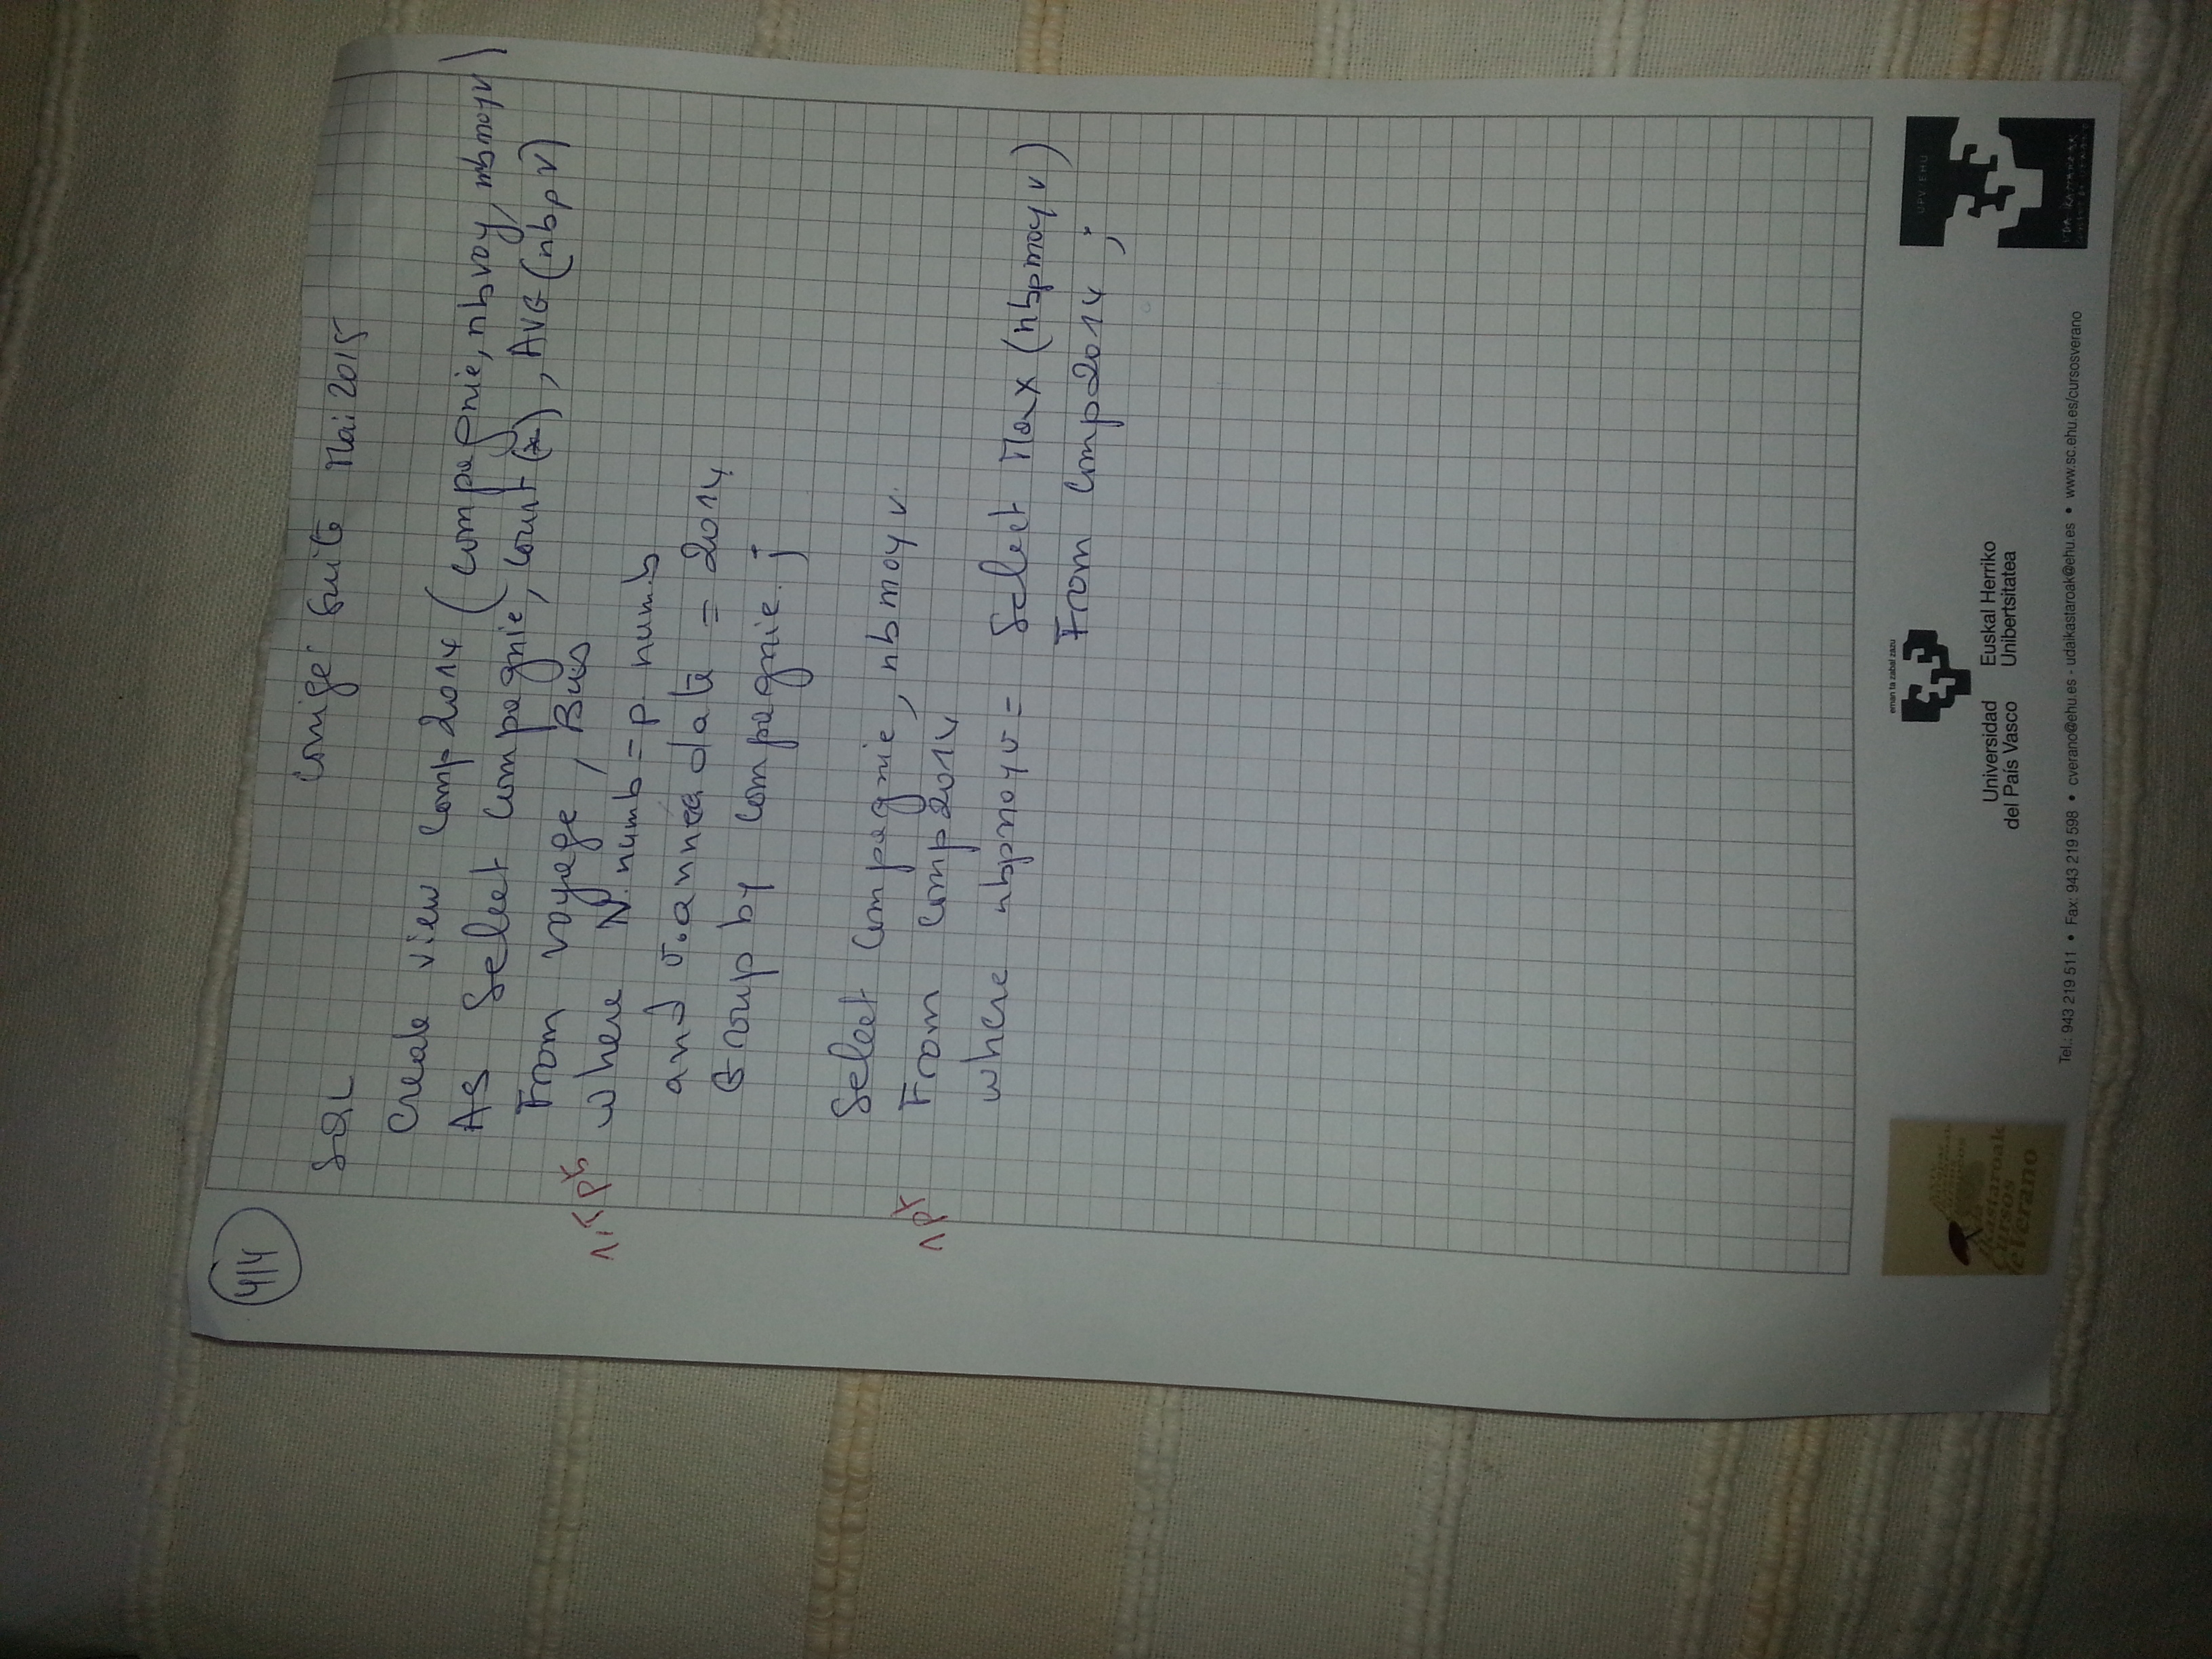 4/4
Corrigé suite Mai 2015
SQL
Create view Comp2014 (compagnie, nbvoy, nbmoyv)
As Select compagnie, count(*), AVG(nbpv)
From voyage, Bus
1,5pts where V.numb = p.numb
and v.année date = 2014
Group by compagnie ;
Select compagnie, nbmoyv
1pt From Comp2014
where nbpmoyv = Select Max (nbpmoyv)
From Comp2014 ;
eman ta zabal zazu
Universidad del País Vasco
Euskal Herriko Unibertsitatea
UPV/EHU
Tel.: 943 219 511 • Fax: 943 219 598 • cverano@ehu.es - udaikastaroak@ehu.es • www.sc.ehu.es/cursosverano